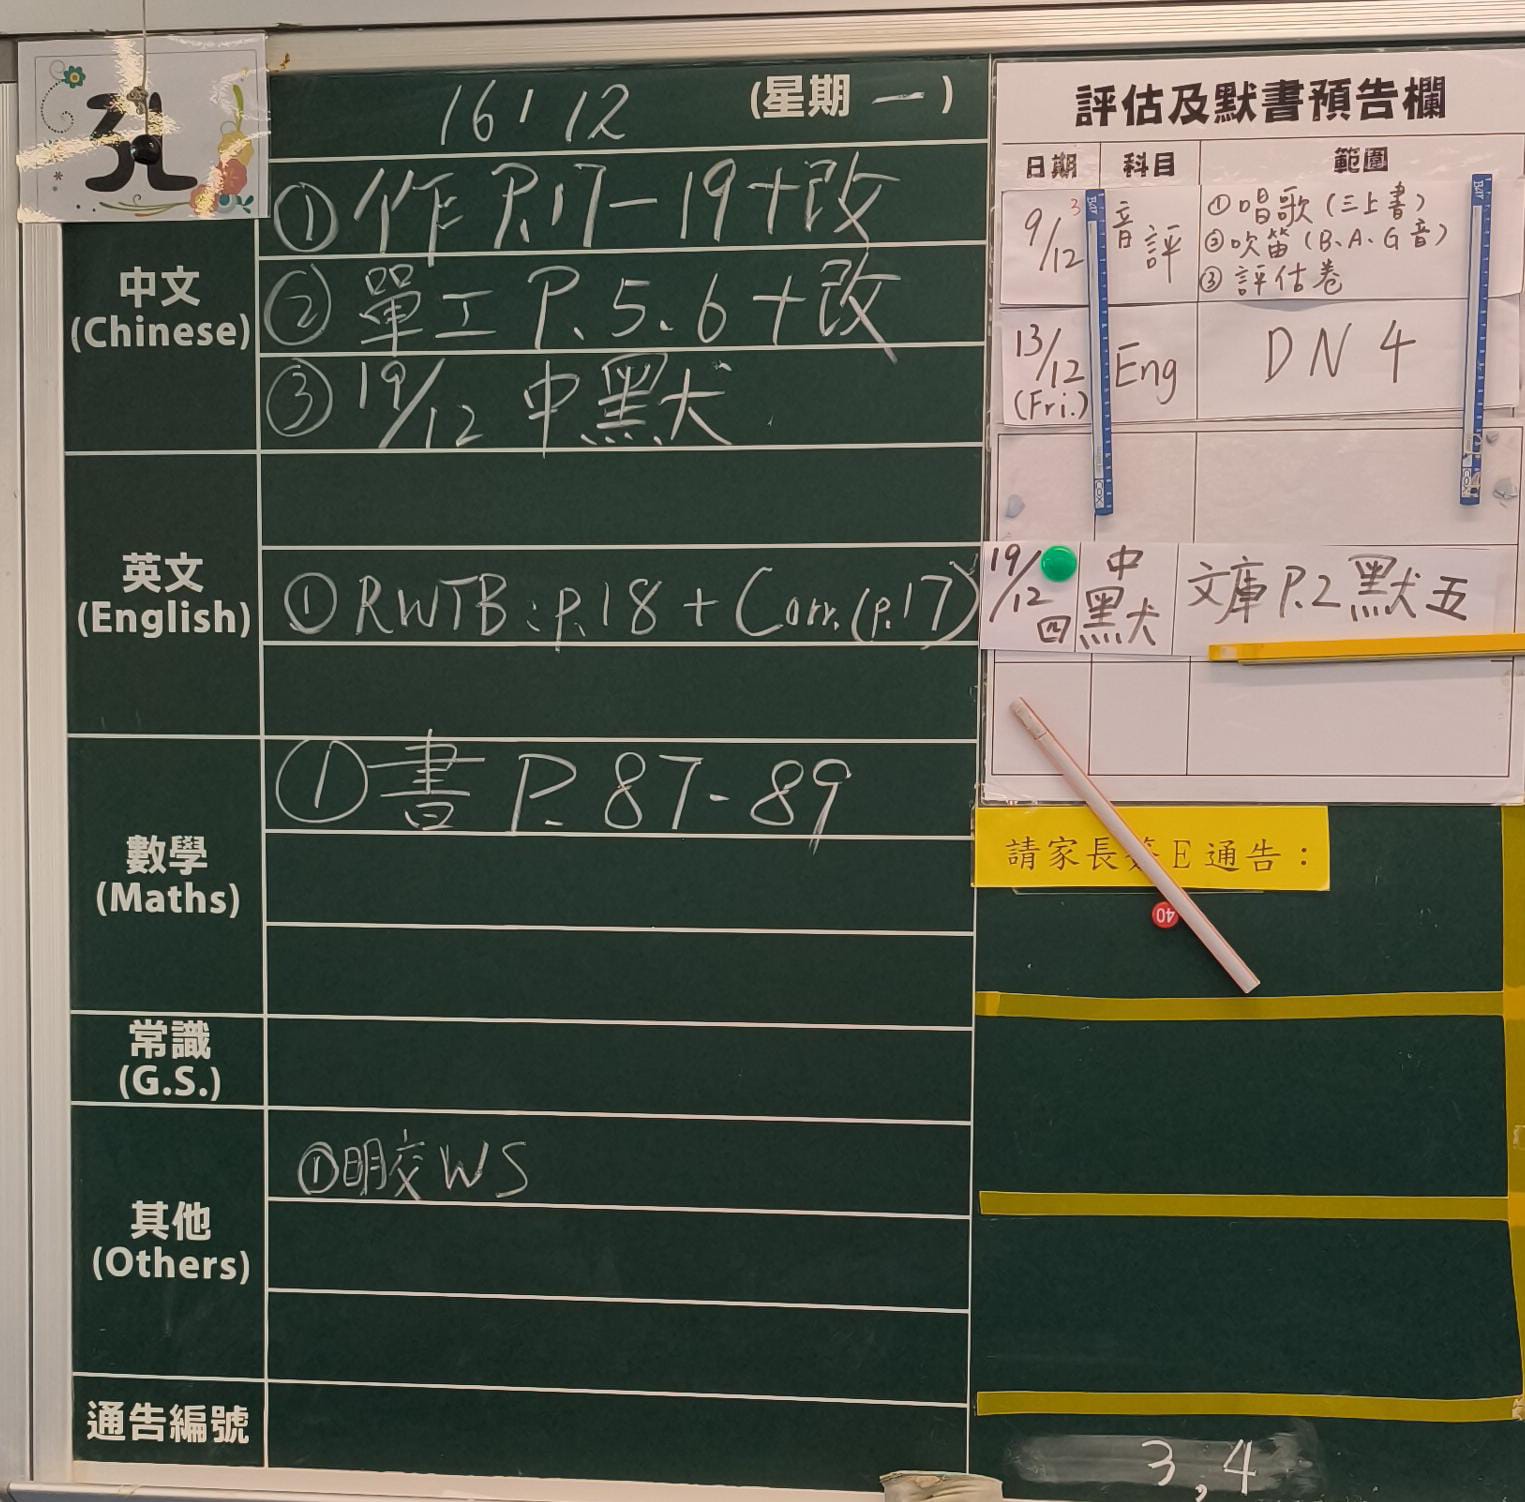 孔
16/12 (星期 一)
中文
(Chinese)
① 作 P.17-19+改
② 單工 P.5.6+改
③ 19/12 中默
英文
(English)
① RWTB: p.18 + Corr. (p.17)
數學
(Maths)
① 書 P.87-89
常識
(G.S.)
其他
(Others)
①明交WS
通告編號
評估及默書預告欄
日期 科目 範圍
9/12 3 音評 ①唱歌(三上書)
②吹笛(B、A、G音)
③評估卷
13/12 (Fri.) Eng DN 4
19/12 四 中默 文庫P.2默五
請家長簽E通告：
40
3,4